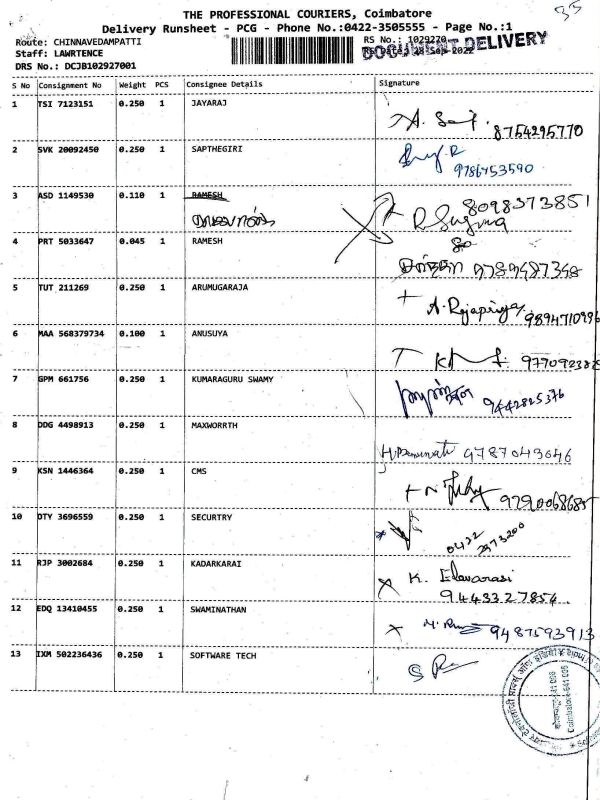 35
THE PROFESSIONAL COURIERS, Coimbatore
Delivery Runsheet - PCG - Phone No.:0422-3505555 - Page No.:1
Route: CHINNAVEDAMPATTI
RS No.: 1029270
Staff: LAWRTENCE
DOCUMENT DELIVERY
DRS No.: DCJB102927001
S No Consignment No Weight PCS Consignee Details Signature
1 TSI 7123151 0.250 1 JAYARAJ 8754295770
2 SVK 20092450 0.250 1 SAPTHEGIRI 9786753590
3 ASD 1149530 0.110 1 RAMESH 8098373851
4 PRT 5033647 0.045 1 RAMESH 9789487348
5 TUT 211269 0.250 1 ARUMUGARAJA A. Rajapriya
6 MAA 568379734 0.100 1 ANUSUYA
7 GPM 661756 0.250 1 KUMARAGURU SWAMY 9442825376
8 DDG 4498913 0.250 1 MAXWORRTH 9787049646
9 KSN 1446364 0.250 1 CMS 9290068685
10 DTY 3696559 0.250 1 SECURTRY 0422 2973200
11 RJP 3002684 0.250 1 KADARKARAI K. Elavarasi
9443327854
12 EDQ 13410455 0.250 1 SWAMINATHAN 9487593913
13 IXM 502236436 0.250 1 SOFTWARE TECH
Coimbatore-641